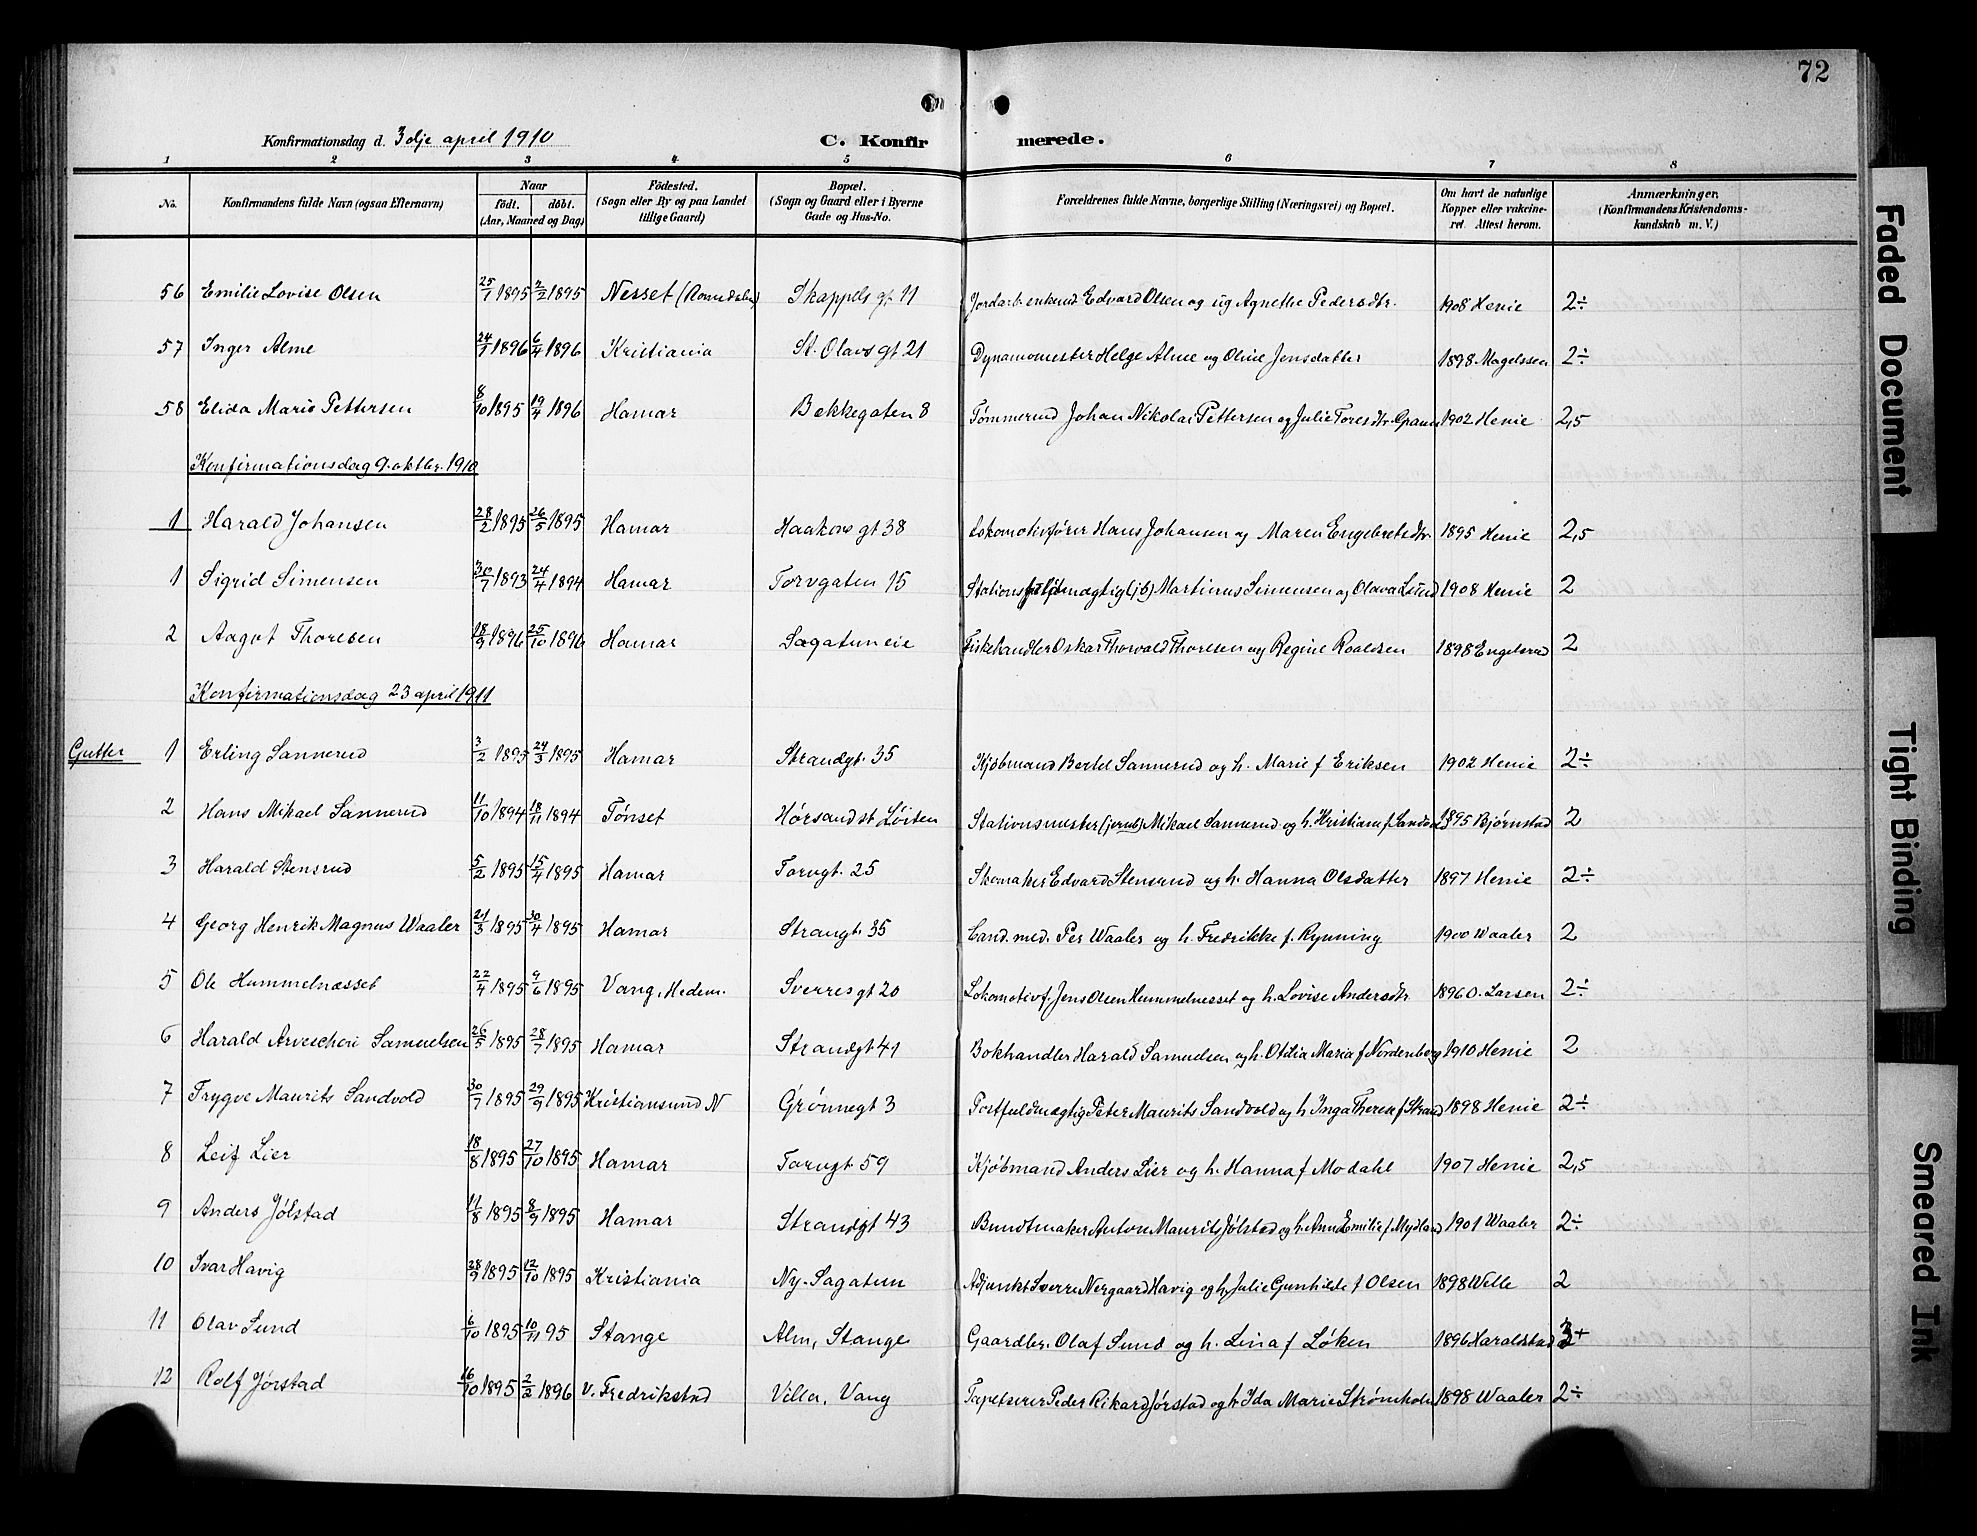 72
Konfirmationsdag d. 3dje april 1910 C. Konfirmerede.
1 2 3 4 5 6 7 8
No. Konfirmandens fulde Navn (ogsaa Efternavn) Naar født. døbt. (Aar, Maaned og Dag) Fødested. (Sogn eller By og paa Landet tillige Gaard) Bopæl. (Sogn og Gaard eller i Byerne Gade og Hus-No. Forældrenes fulde Navne, borgerlige Stilling (Næringsvei) og Bopæl. Om havt de naturlige Kopper eller vakcineret. Attest herom. Anmærkninger. (Konfirmandens Kristendomskundskab m. V.)
56 Emilie Lovise Olsen 25/1 1895 2/2 1895 Nesset (Romsdalen) Skappels gt 11 Edvard Olsen og ug Agnethe Pedersdtr. 1908 Henie 2÷
57 Inger Alme 24/1 1896 6/4 1896 Kristiania St. Olavs gt 21 Dynamomester Helge Alme og Oline Jensdatter 1898 Magelssen 2÷
58 Elida Marie Pettersen 8/10 1895 19/4 1896 Hamar Bekkegaten 8 Tømmermd Johan Nikolai Pettersen og Julie Toresdtr. 1902 Henie 2,5
Konfirmationsdag 9. oktbr. 1910
1 Harald Johansen 28/2 1895 26/5 1895 Hamar Haakons gt 38 Lokomotivfører Hans Johansen og Maren Engebretsdtr. 1895 Henie 2,5
1 Sigrid Simensen 30/7 1893 24/4 1894 Hamar Torvgaten 15 Stationsfuldmægtig (jb) Martinus Simensen og Olava Lund 1908 Henie 2
2 Aagot Thoresen 18/9 1896 25/10 1896 Hamar Sagatun eie Fiskehandler Oskar Thorvald Thoresen og Regine Roaldsen 1898 Engelsrud 2
Konfirmationsdag 23 april 1911
Gutter 1 Erling Sannerud 3/2 1895 24/3 1895 Hamar Strandgt. 35 Kjøbmand Bertel Sannerud og h. Marie f Eriksen 1902 Henie 2÷
2 Hans Mikael Sannerud 11/10 1894 18/11 1894 Tønset Hørsand st Løiten Stationsmester (jernb) Mikael Sannerud og h. Kristiane f. Sandvold 1895 Bjørnstad 2
3 Harald Stensrud 5/2 1895 15/4 1895 Hamar Torvgt. 25 Skomaker Edvard Stensrud og h. Hanna Olsdatter 1897 Henie 2÷
4 Georg Henrik Magnus Waaler 21/3 1895 30/4 1895 Hamar Strangt. 35 Cand. med. Per Waaler og h. Fredrikke f. Rynning 1900 Waaler 2
5 Ole Hummelnæsset 22/4 1895 9/6 1895 Vang, Hedem. Sverres gt 20 Lokomotivf. Jens Olsen Hummelnesset og h. Lovise Andersdtr. 1896 O. Larsen 2÷
6 Harald Samuelsen 26/5 1895 28/7 1895 Hamar Strandgt 41 Bokhandler Harald Samuelsen og h. Otilia Maria f Nordenborg 1910 Henie 2
7 Trygve Maurits Sandvold 30/7 1895 29/9 1895 Kristiansund N Grønnegt 3 Postfuldmægtig Peter Maurits Sandvold og h Inga Therese f Strand 1898 Henie 2÷
8 Leif Lier 18/8 1895 27/10 1895 Hamar Torvgt 59 Kjøbmand Anders Lier og h. Hanna f Modahl 1907 Henie 2,5
9 Anders Jølstad 11/8 1895 8/9 1895 Hamar Strandgt 43 Bundtmaker Anton Maurits Jølstad og h. Ann Emilie f. Mydland 1901 Waaler 2÷
10 Ivar Havig 28/9 1895 12/10 1895 Kristiania Ny-Sagatun Adjunkt Sverre Nergaard Havig og h. Julie Gunhilde f Olsen 1898 Welle 2
11 Olav Sund 6/10 1895 10/11 95 Stange Alm, Stange Gaardbr. Olaf Sund og h. Lina f Løken 1896 Haraldstad
12 Rolf Jørstad 16/10 1895 2/2 1896 v. Fredrikstad Villa, Vang Tapetserer Peder Rikard Jørstad og h Ida Marie Strømholm 1898 Waaler 2÷
Faded Document
Tight Binding
Smeared Ink